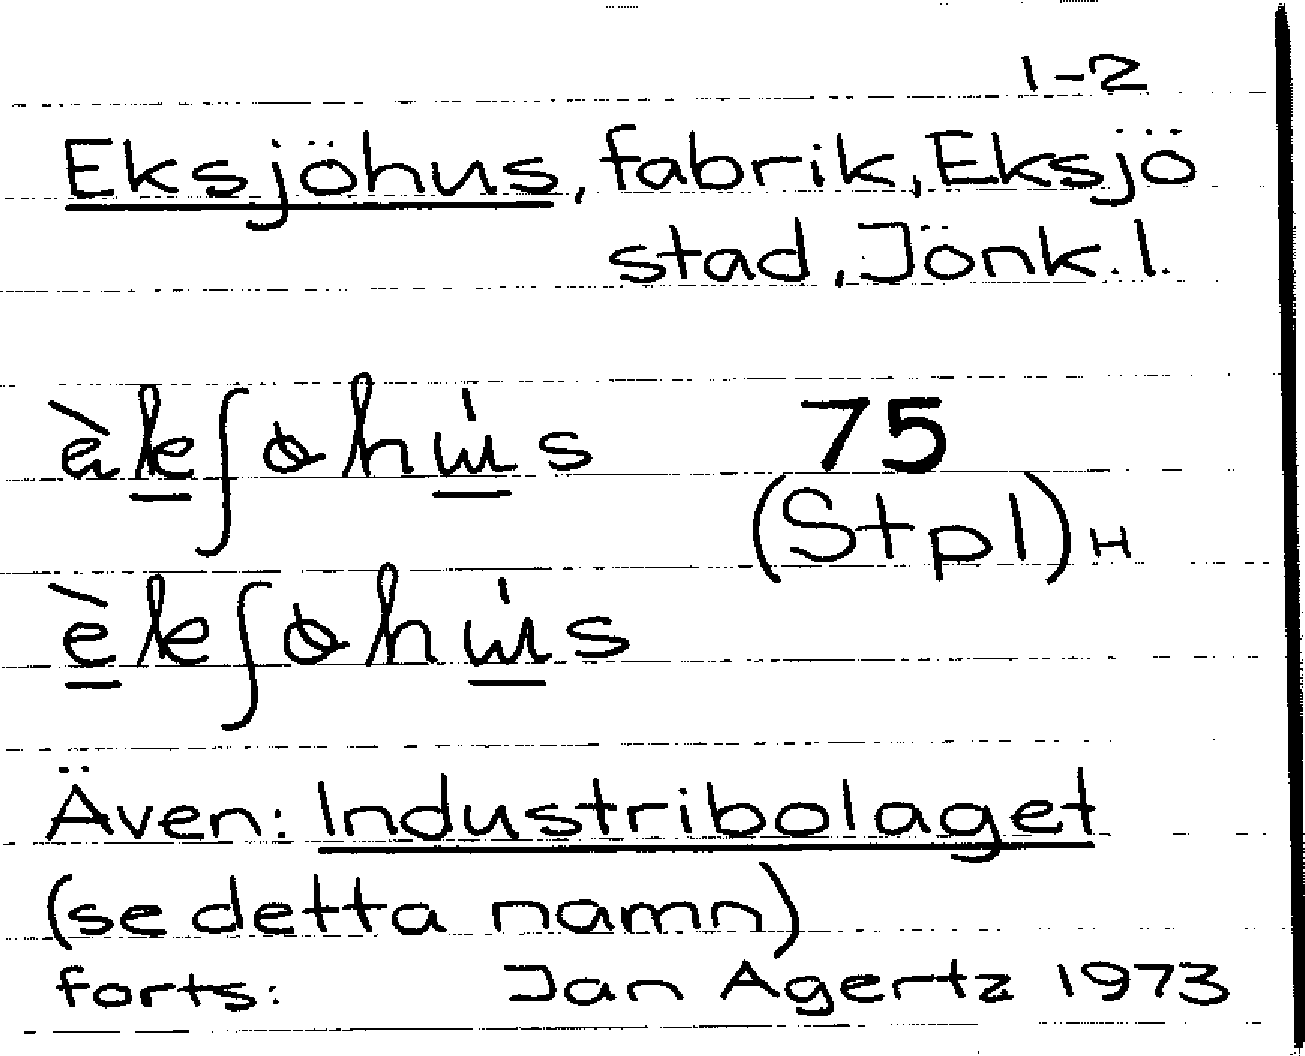 1-2
Eksjöhus, fabrik, Eksjö
stad, Jönk. l.
75
(Stpl) H
Även: Industribolaget
(se detta namn)
forts: Jan Agertz 1973